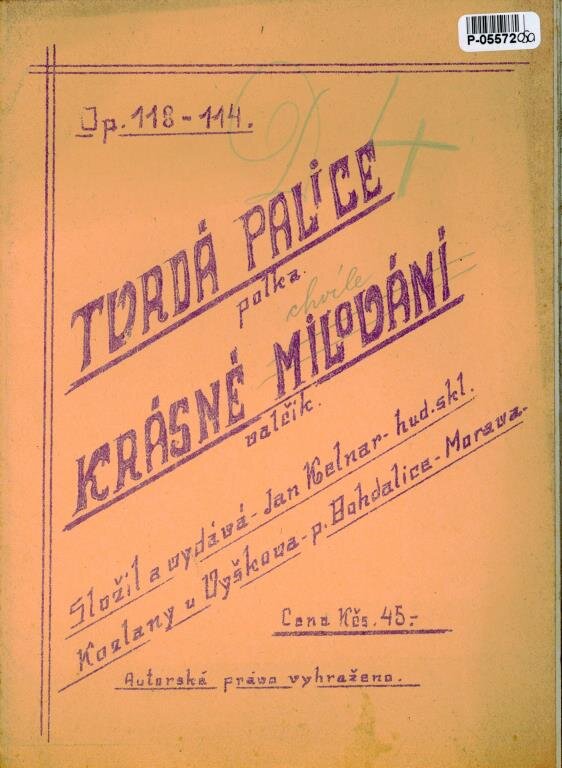 P-05572
Op. 118-114.
D 4
TVRDÁ PALICE
polka.
chvíle
KRÁSNÉ MILOVÁNÍ
valčík.
Složil a vydává - Jan Kelnar - hud. skl.
Kozlany u Vyškova - p. Bohdalice - Morava -
Cena Kčs. 45.-
Autorská práva vyhražena.